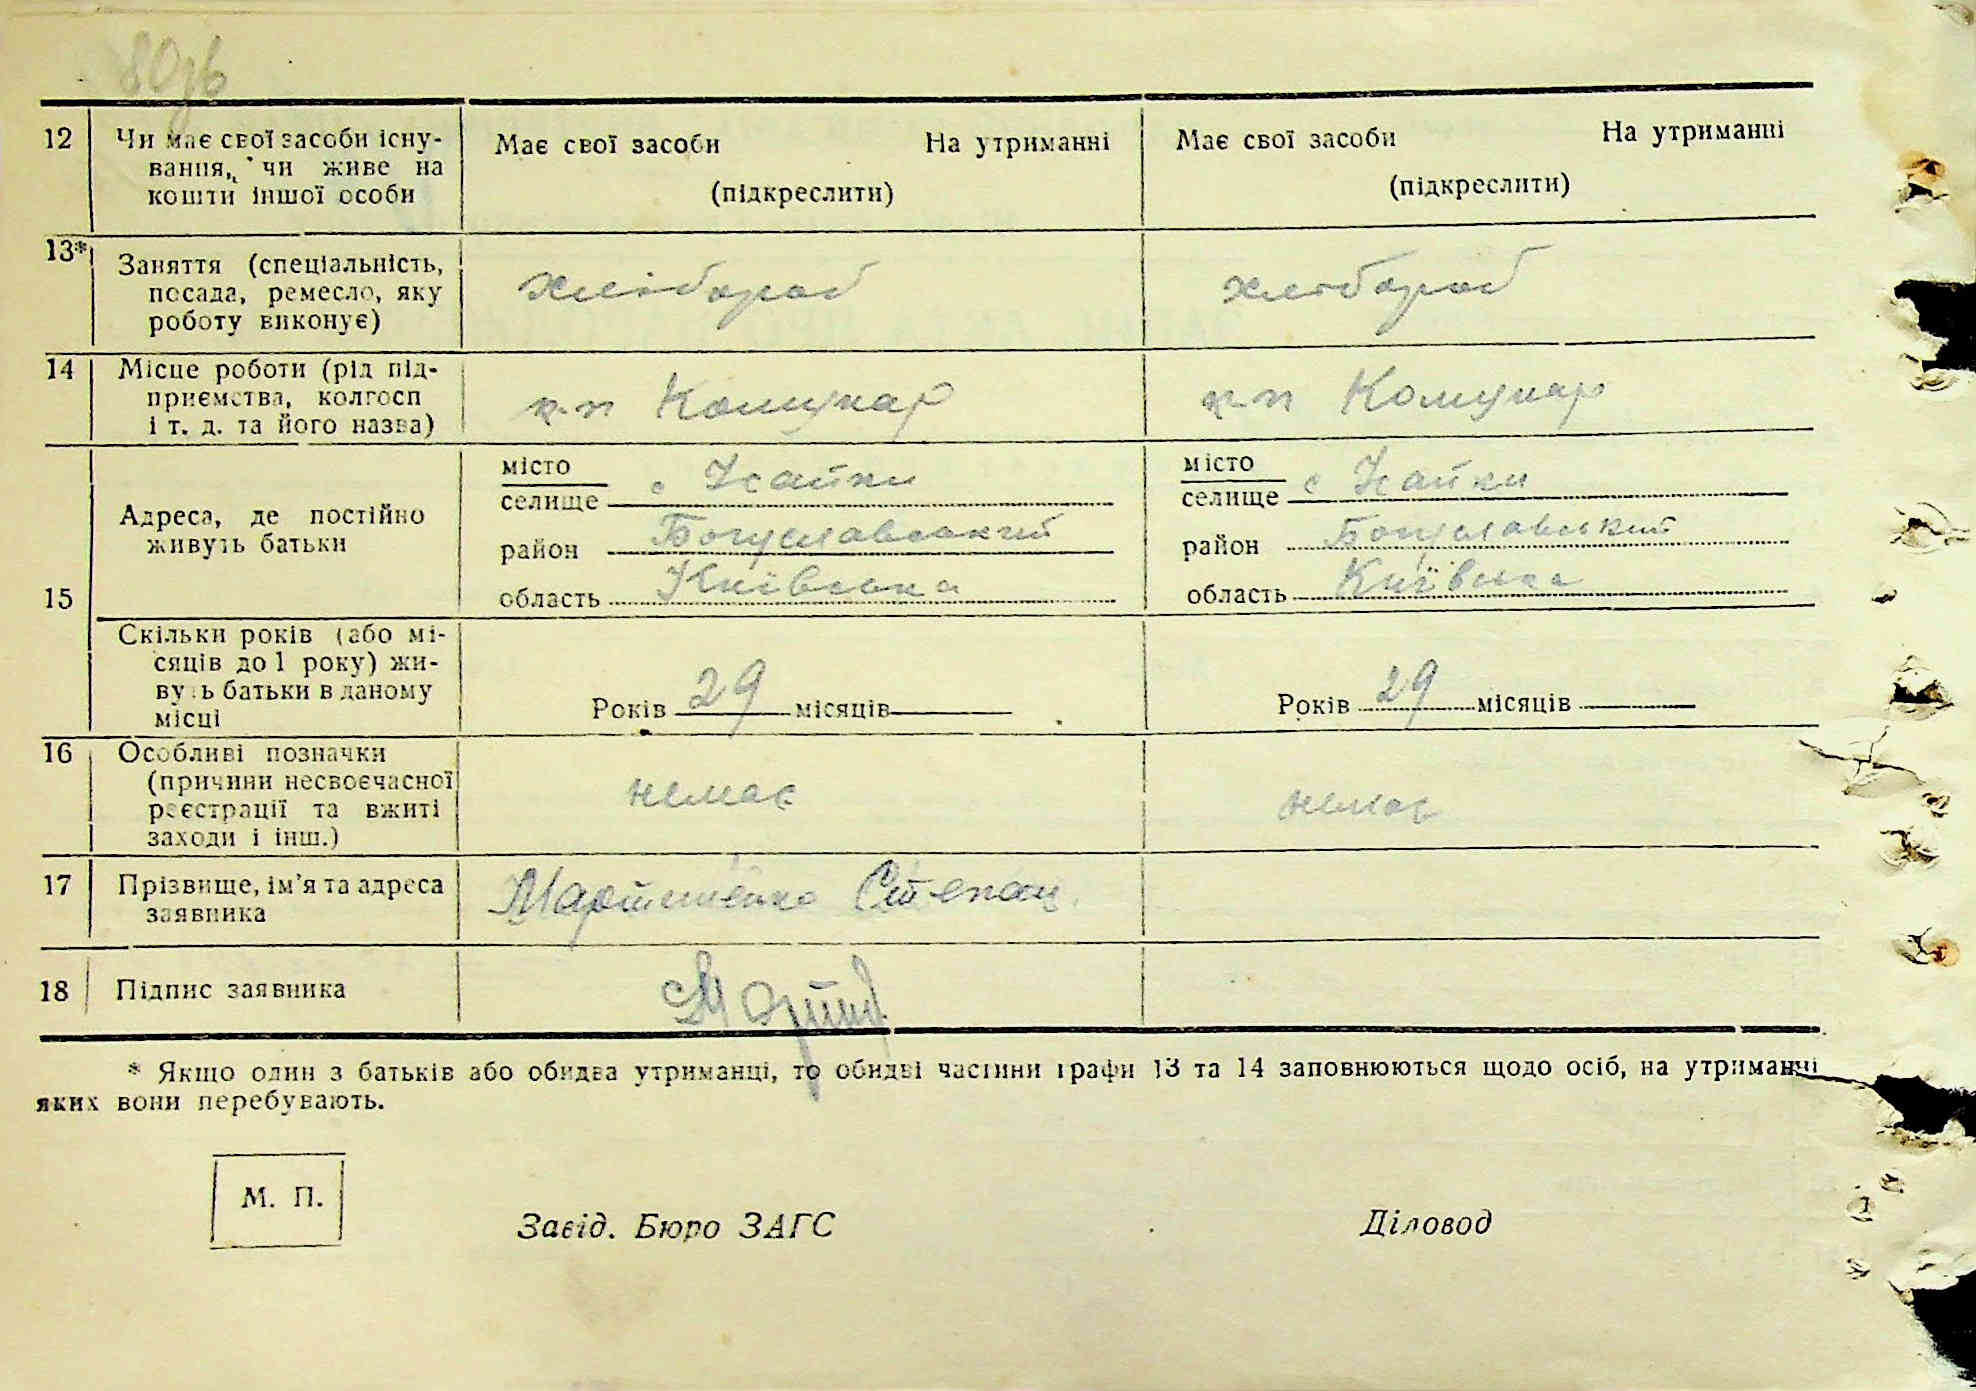 80зв
12 Чи має свої засоби існу- Має свої засоби На утриманні Має свої засоби На утриманні
вання, чи живе на (підкреслити) (підкреслити)
кошти іншої особи
13* Заняття (спеціальність, хлібороб хлібороб
посада, ремесло, яку
роботу виконує)
14 Місце роботи (рід під- Комунар Комунар
приємства, колгосп
і т. д. та його назва)
15 Адреса, де постійно
живуть батьки
місто
селище с
район Богуславський
область Київська
місто
селище с
район Богуславський
область Київська
Скільки років (або мі-
сяців до 1 року) жи-
вуть батьки в даному
місці
Років 29 місяців
Років 29 місяців
16 Особливі позначки немає немає
(причини несвоєчасної
реєстрації та вжиті
заходи і інш.)
17 Прізвище, ім'я та адреса Мартиненко Степан
заявника
18 Підпис заявника
* Якщо один з батьків або обидва утриманці, то обидві частини графи 13 та 14 заповнюються щодо осіб, на утриманні
яких вони перебувають.
М. П.
Завід. Бюро ЗАГС Діловод